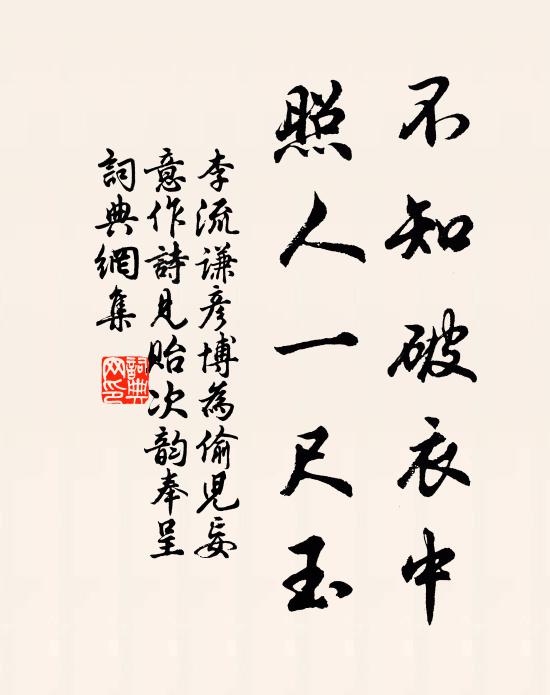 不知破衣中
照人一尺玉
李流謙彥博為偷兒妄
意作詩見貽次韵奉呈
詞典網集
詞典
网印